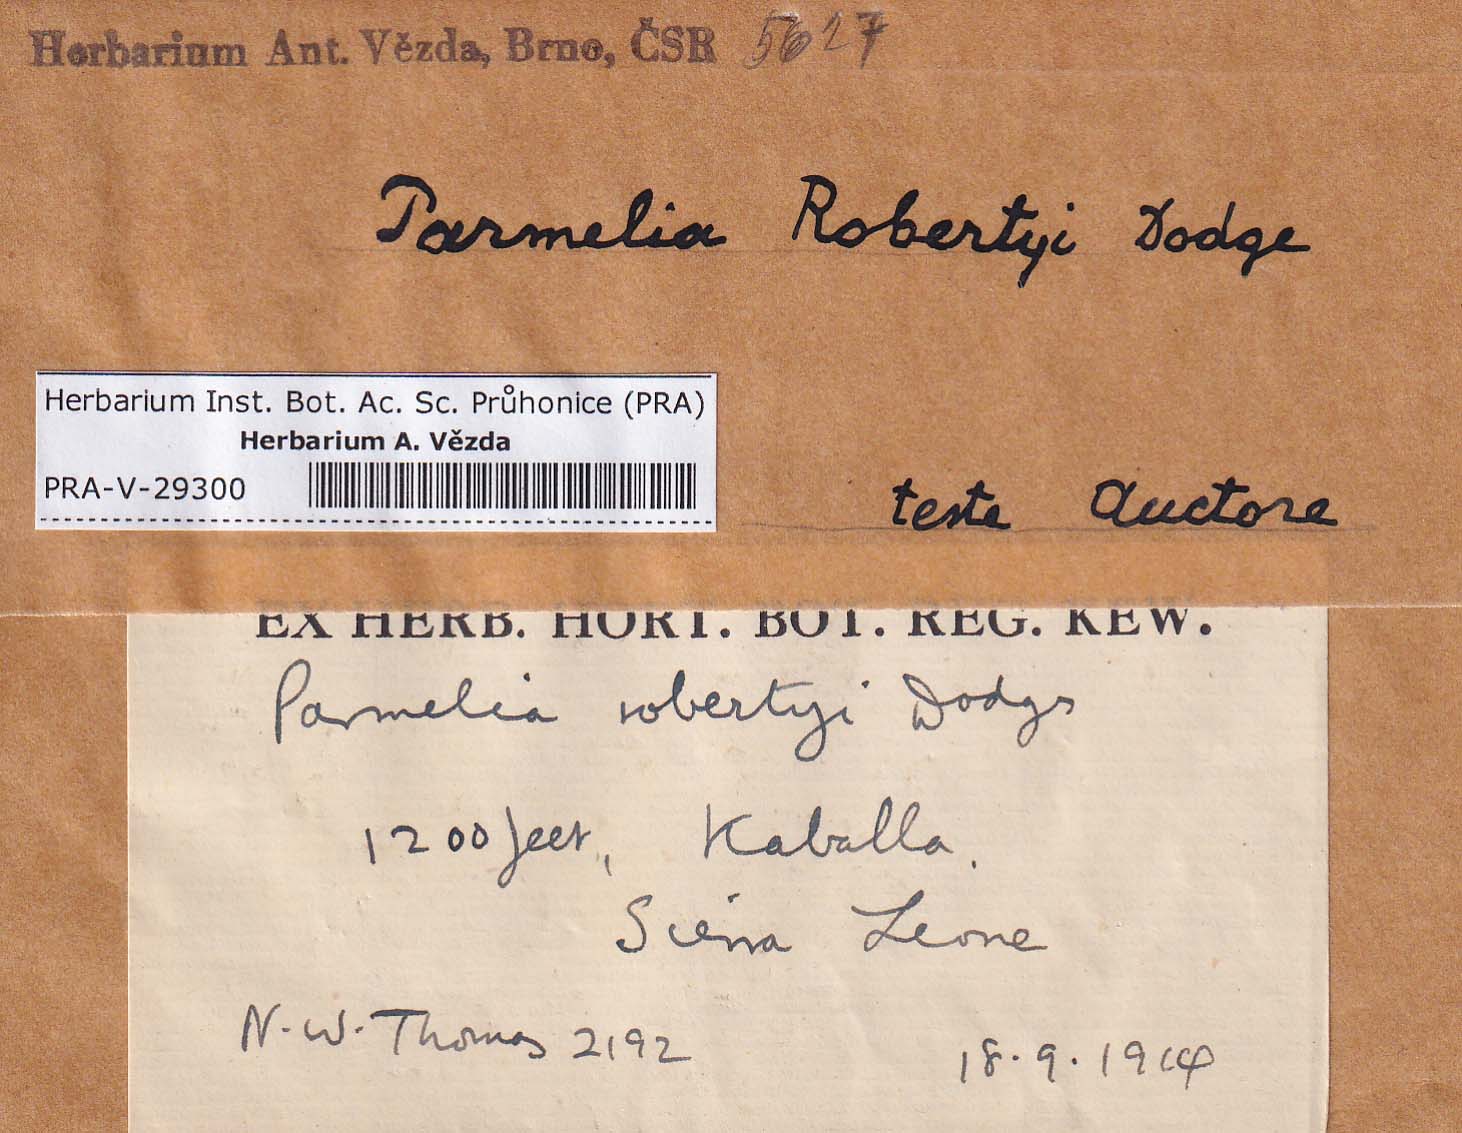 Herbarium Ant. Vězda, Brno, ČSR 5627
Parmelia Robertyi Dodge
Herbarium Inst. Bot. Ac. Sc. Průhonice (PRA)
Herbarium A. Vězda
PRA-V-29300
teste auctore
EX HERB. HORT. BOT. REG. KEW.
Parmelia robertyi Dodge
1200 feet, Kaballa.
Sierra Leone
N. W. Thomas 2192 18.9.1914